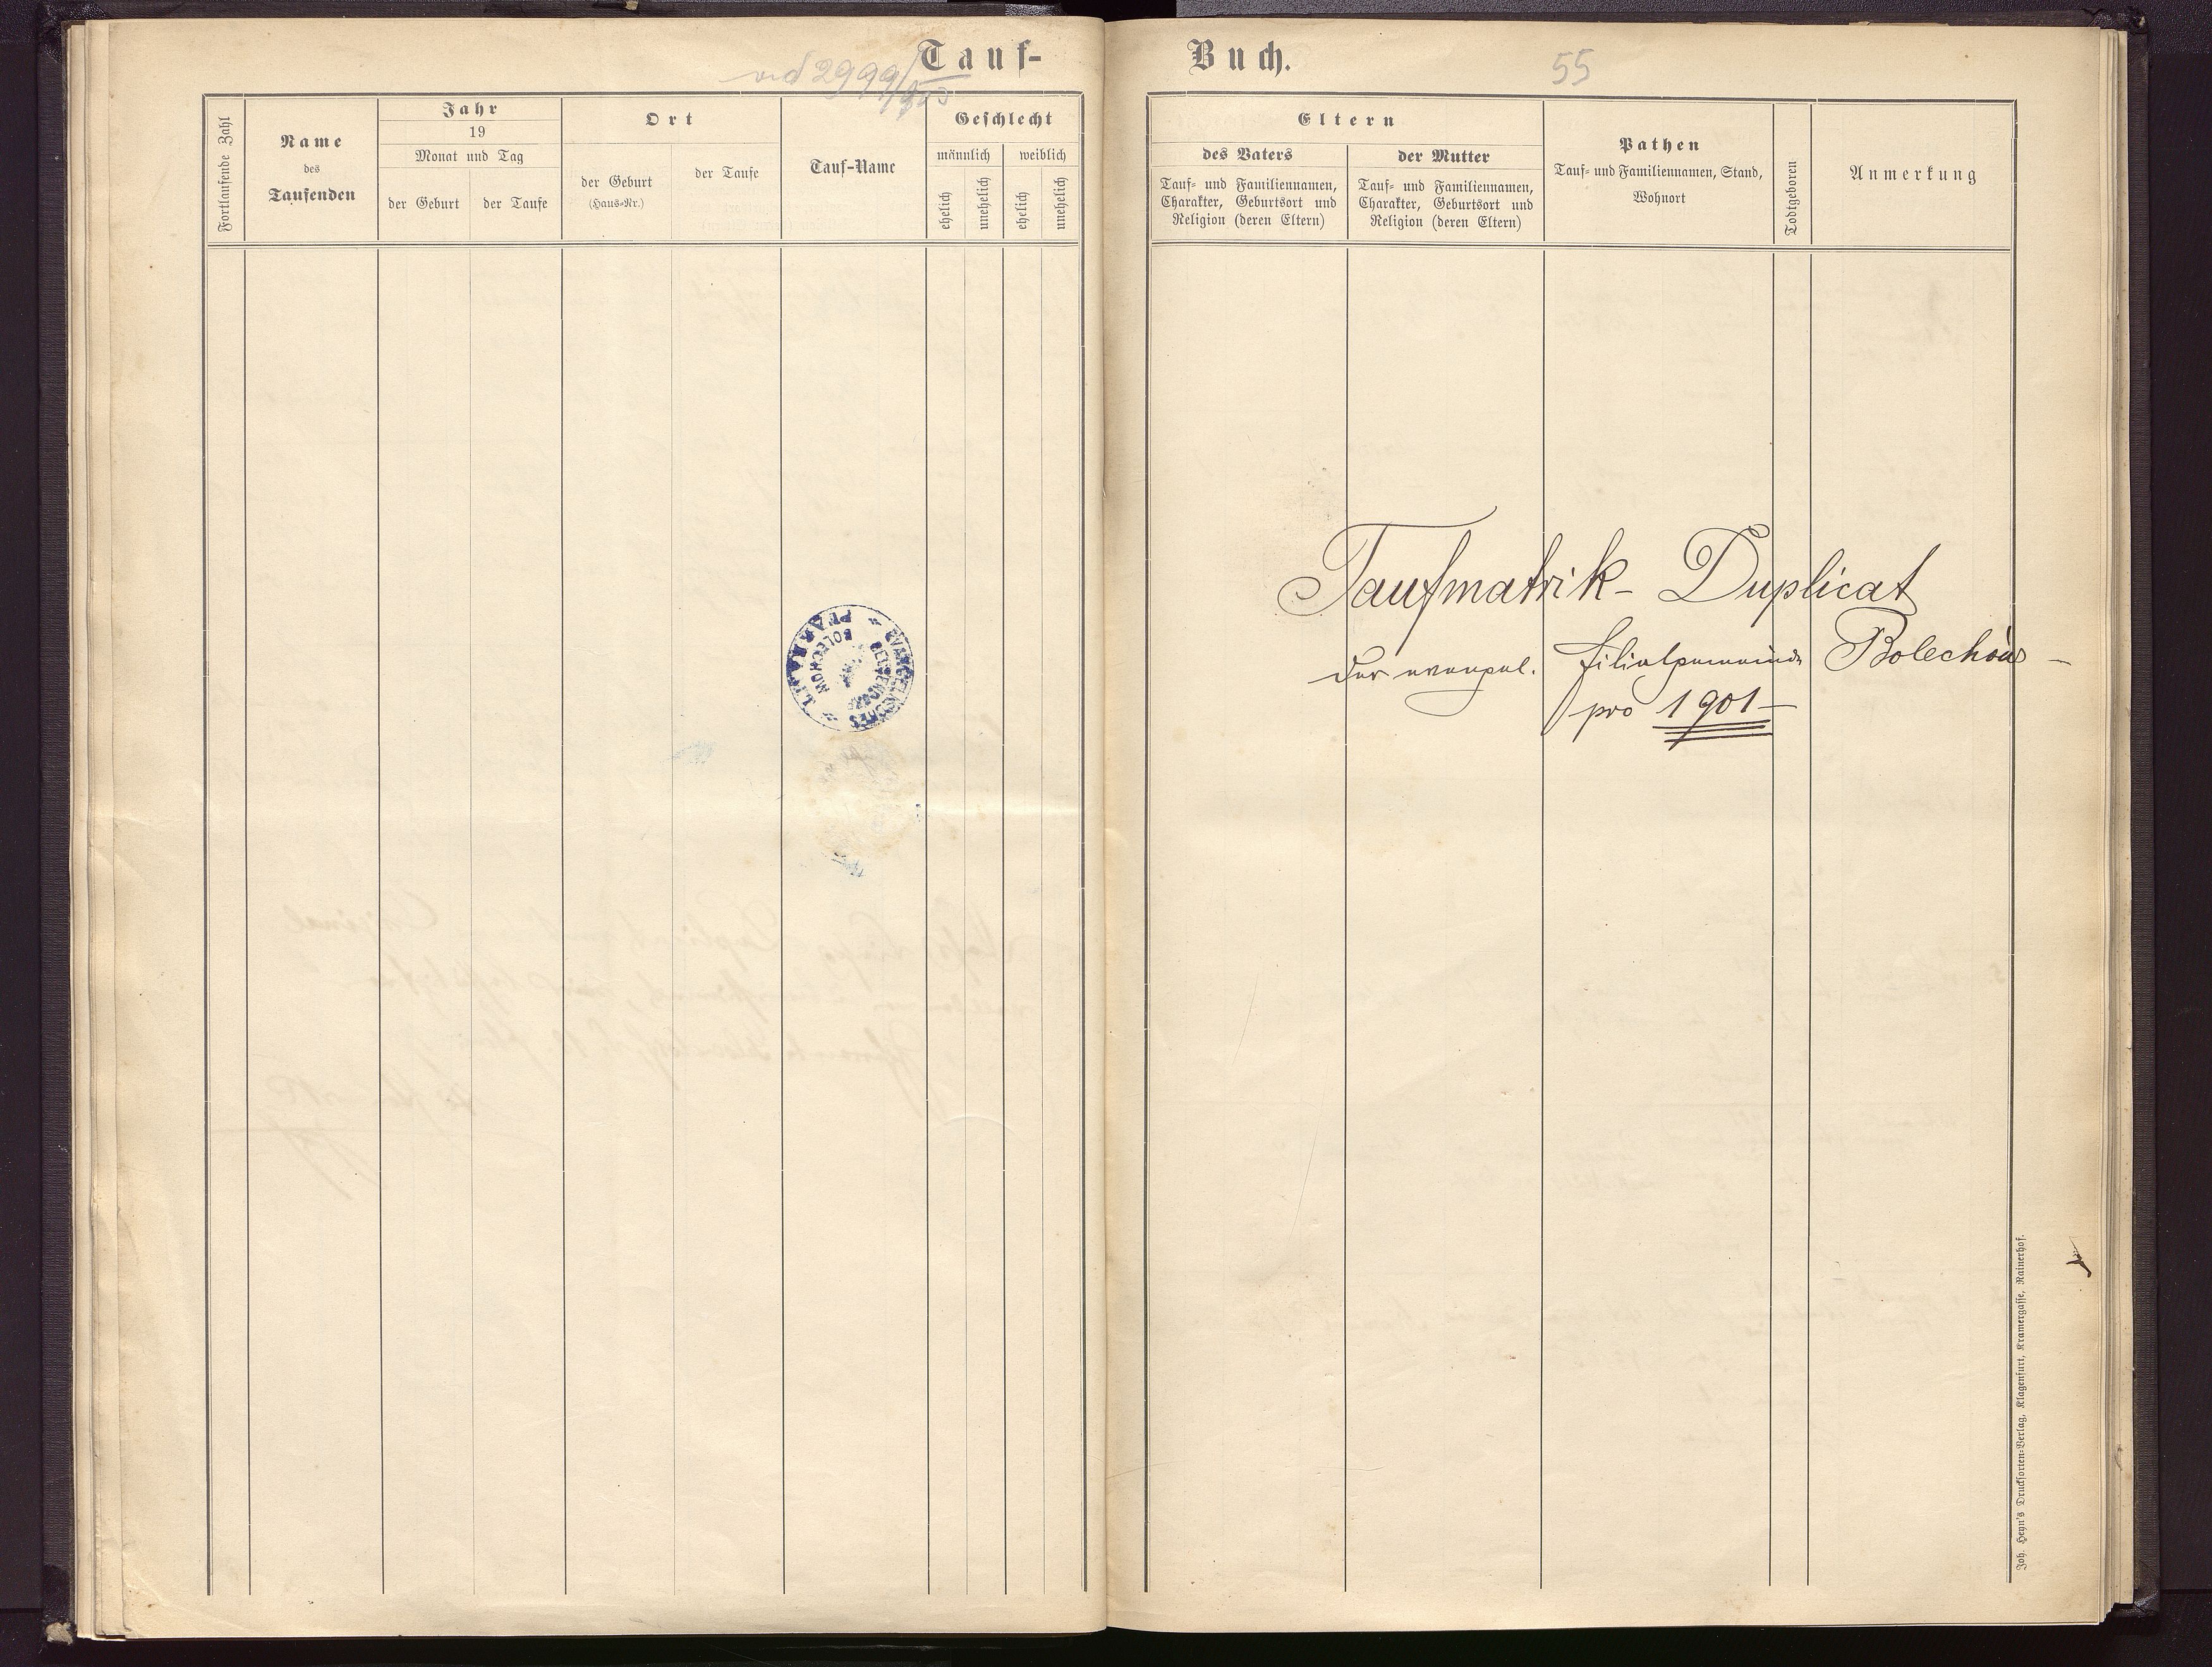 Tauf-
Buch.
55
Fortlaufende Zahl
Name
des
Taufenden
Jahr
19
Monat und Tag
der Geburt
der Taufe
Ort
der Geburt
(Haus-Nr.)
der Taufe
Tauf-Name
Geschlecht
männlich
weiblich
ehelich
unehelich
ehelich
unehelich
Eltern
des Vaters
Tauf- und Familiennamen,
Charakter, Geburtsort und
Religion (deren Eltern)
der Mutter
Tauf- und Familiennamen,
Charakter, Geburtsort und
Religion (deren Eltern)
Pathen
Tauf- und Familiennamen, Stand,
Wohnort
Todtgeboren
Anmerkung
EVANGELISCHES PFARRAMT
BOLECHOW
Taufmatrik- Duplicat
der evangel. Filialgemeinde Bolechów -
pro 1901 -
Joh. Heyn's Drucksorten-Verlag, Klagenfurt, Kramergasse, Rainerhof.